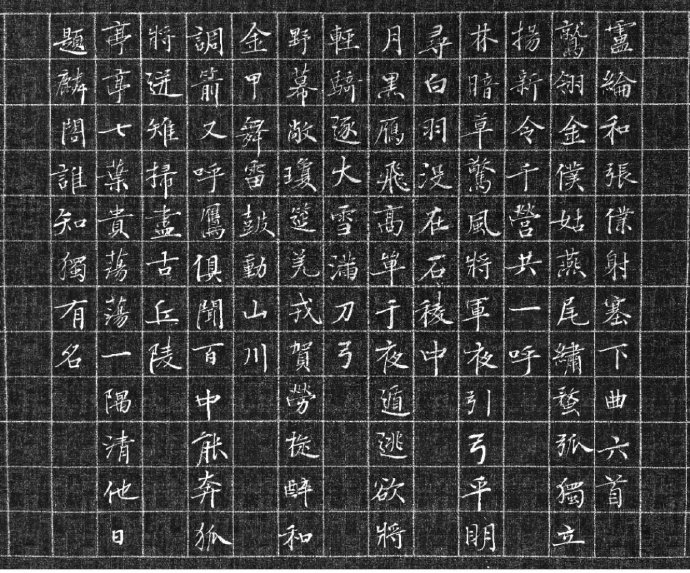 盧綸和張僕射塞下曲六首
鷲翎金僕姑燕尾繡蝥弧獨立
揚新令千營共一呼
林暗草驚風將軍夜引弓平明
尋白羽没在石稜中
月黑鴈飛高單于夜遁逃欲將
輕騎逐大雪滿刀弓
野幕敞瓊筵羌戎賀勞旋醉和
金甲舞雷鼓動山川
調箭又呼鷹俱聞百中能奔狐
將迸雉掃盡古丘陵
亭亭七葉貴蕩蕩一隅清他日
題麟閣誰知獨有名